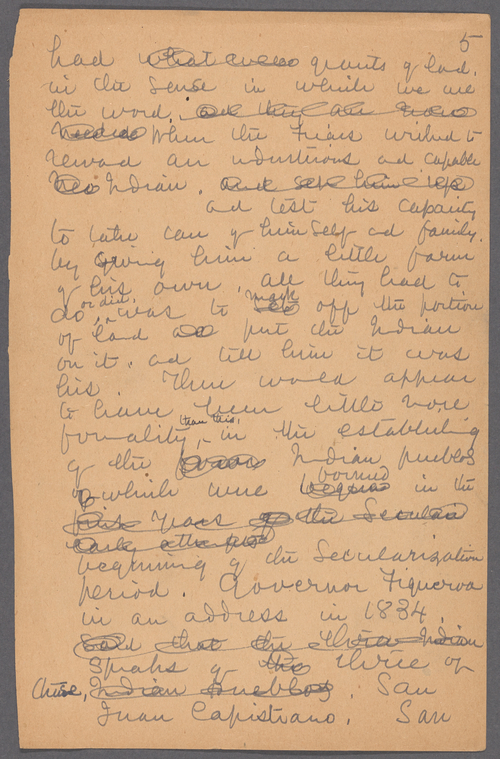 5
had what are grants of land,
in the sense in which we use
the word.
When the Friars wished to
reward an industrious and capable
Indian, and set him up
and test his capacity
to take care of himself and family
by giving him a little farm
of his own, all they had to
do, or did, was to mark off the portion
of land put the Indian
on it, and tell him it was
his. There would appear
to have been little more
formality, than this, in the establishing
of the Indian pueblos
which were formed in the
first years of the Secular
beginning of the Secularization
period. Governor Figueroa
in an address in 1834,
Said that the three Indian
Speaks of the three of
these, Indian Pueblos, San
Juan Capistrano, San